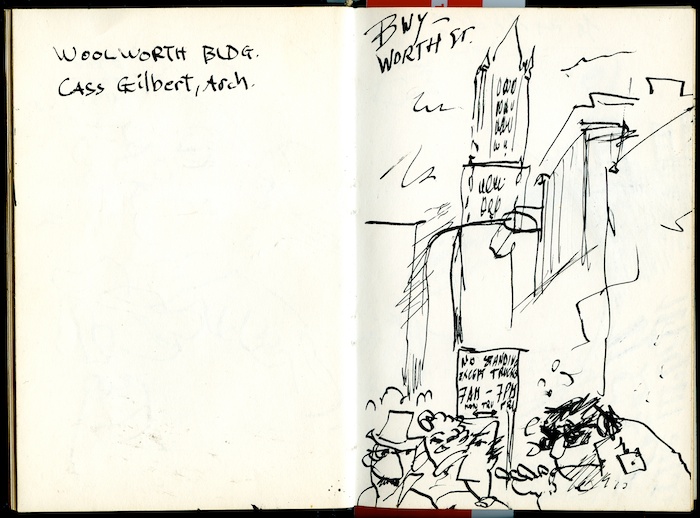 WOOLWORTH BLDG.
Cass Gilbert, Arch.
BWY –
WORTH ST.
NO STANDING
EXCEPT TRUCKS
7AM – 7PM
MON THU FRI